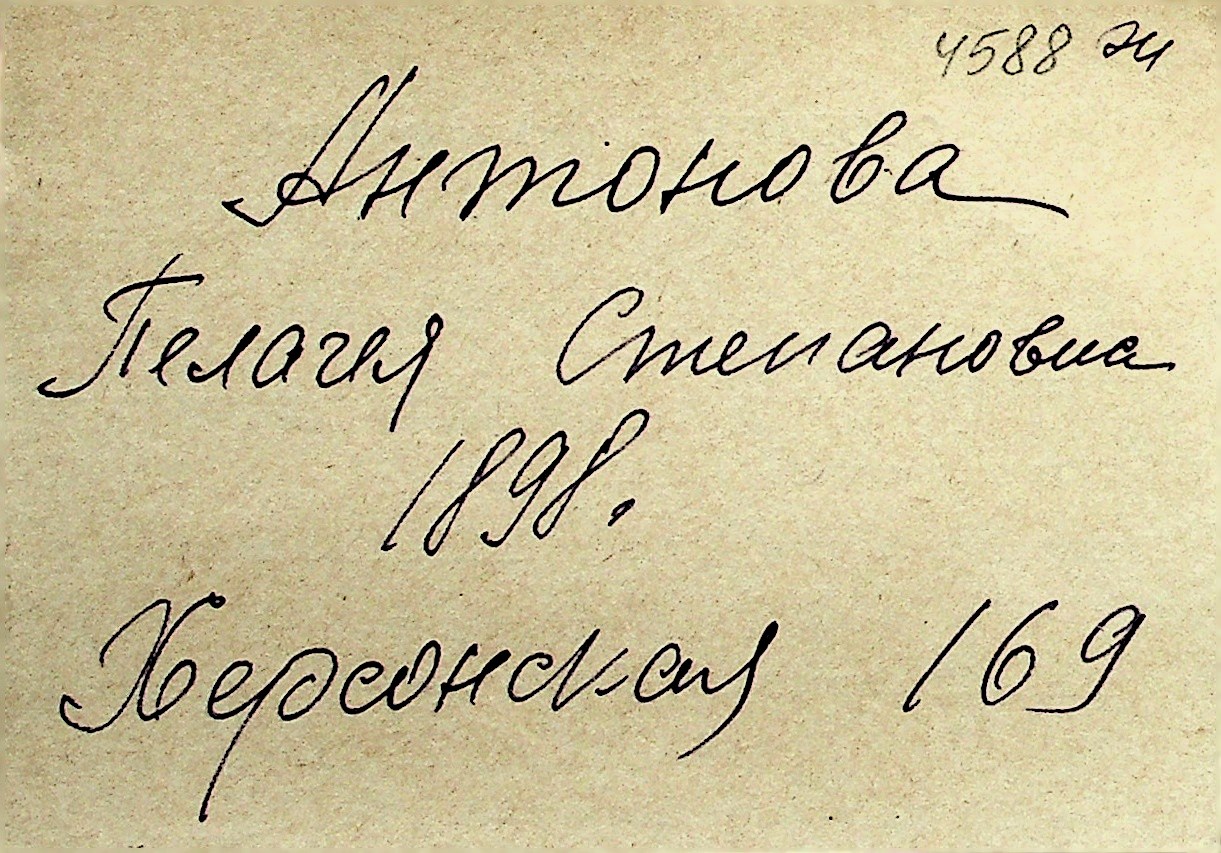 4588 эч
Антонова
Пелагея Степановна
1898.
Херсонская 169